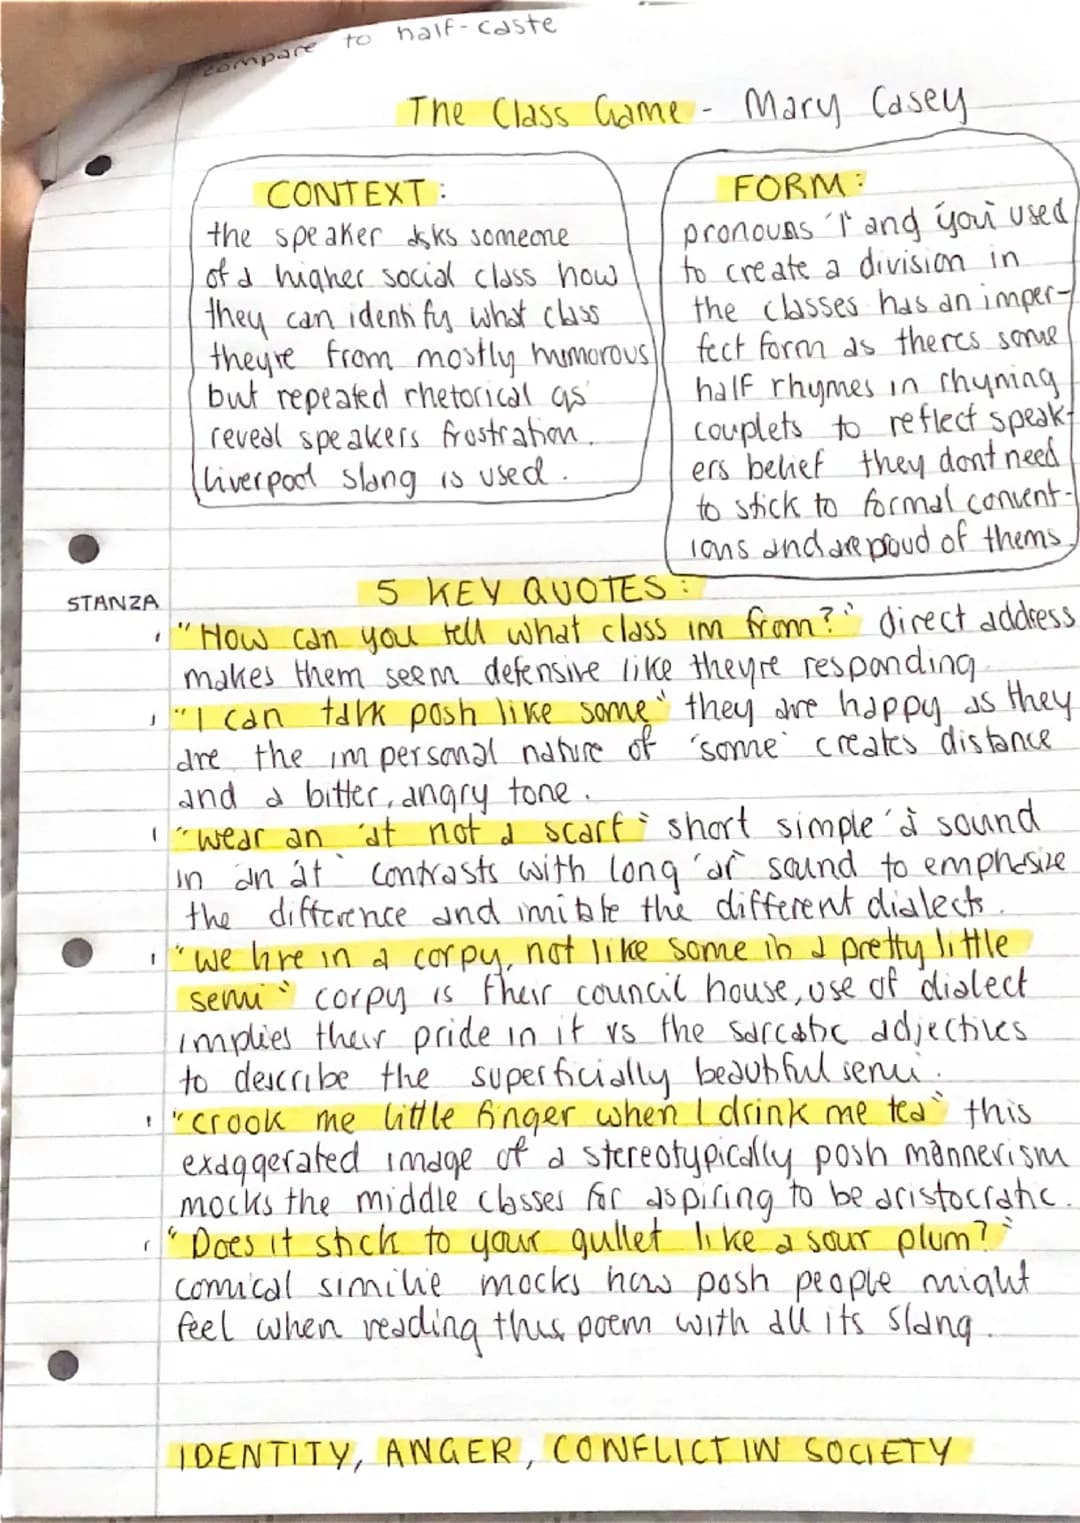 compare to half-caste
The Class Game - Mary Casey
CONTEXT:
the speaker asks someone
of a higher social class how
they can identify what class
theyre from mostly humorous
but repeated rhetorical qs
reveal speakers frostration.
Liverpool slang is used.
FORM:
pronouns 'I' and 'you' used
to create a division in
the classes has an imper-
fect form as theres some
half rhymes in rhyming
couplets to reflect speak-
ers belief they dont need
to stick to formal convent-
ions and are poud of thems
5 KEY QUOTES:
STANZA
1 "How can you tell what class im from?" direct address
makes them seem defensive like theyre responding
1 "I can talk posh like some" they are happy as they
are the impersonal nature of 'some' creates distance
and a bitter, angry tone.
1 "wear an 'at not a scarf" short simple 'a' sound
in an 'at' contrasts with long 'ar' sound to emphasize
the difference and imitate the different dialects.
1 "we live in a corpy, not like some in a pretty little
semi" corpy is their council house, use of dialect
implies their pride in it vs the sarcatic adjectives
to describe the superficially beautiful semi.
1 "crook me little finger when I drink me tea" this
exaggerated image of a stereotypically posh mannerism
mocks the middle classes for aspiring to be aristocratic.
1 "Does it stick to your gullet like a sour plum?"
comical similie mocks how posh people might
feel when reading this poem with all its slang.
IDENTITY, ANGER, CONFLICT IN SOCIETY